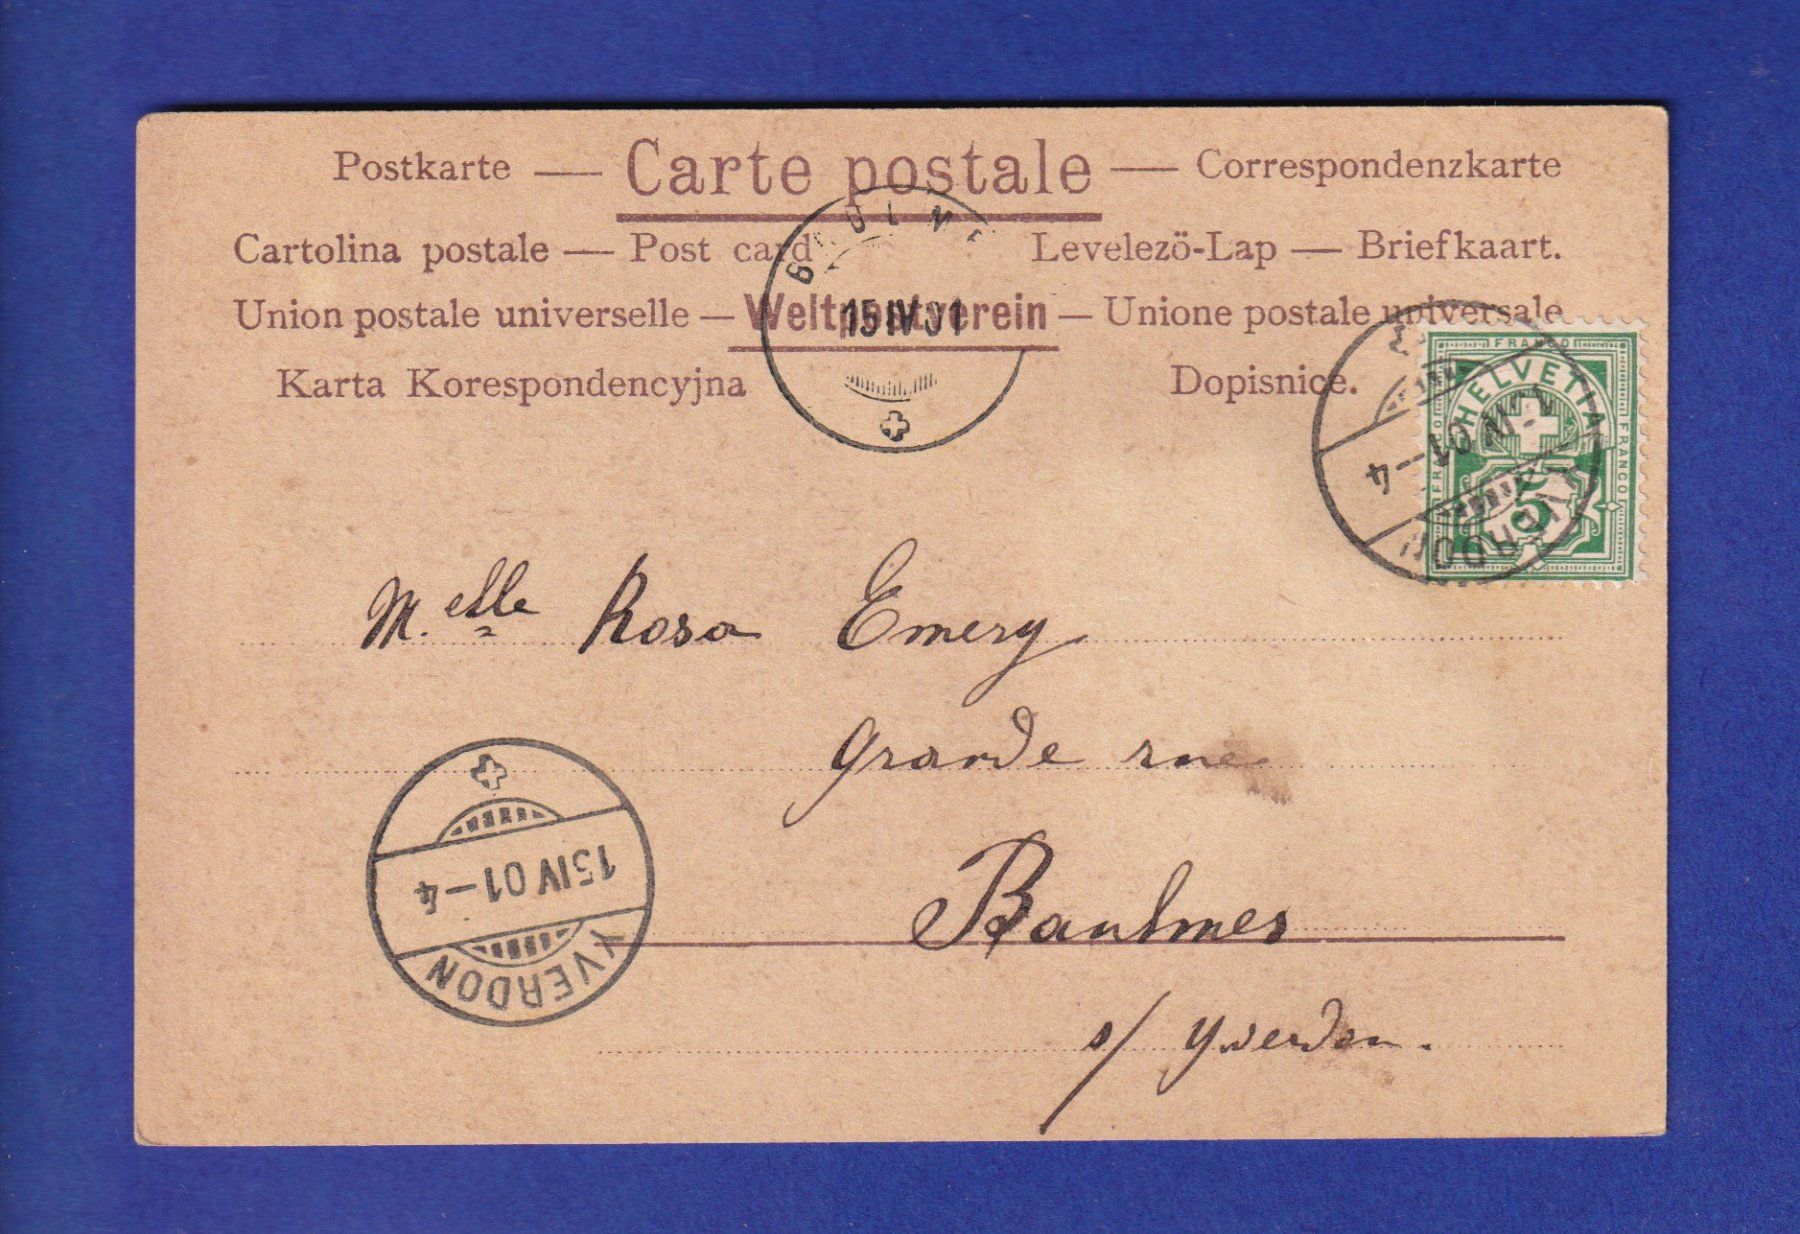 Postkarte — Carte postale — Correspondenzkarte
Cartolina postale — Post card Levelezö-Lap — Briefkaart.
Union postale universelle — Weltpostverein — Unione postale universale
Karta Korespondencyjna Dopisnice.
15 IV 01
FRANCO
HELVETIA
FRANCO
FRANCO
5
YVERDON
IV 01–4
M.elle Rosa Emery
Grande rue
Baulmes
s/ Yverdon.
15 IV 01–4
YVERDON